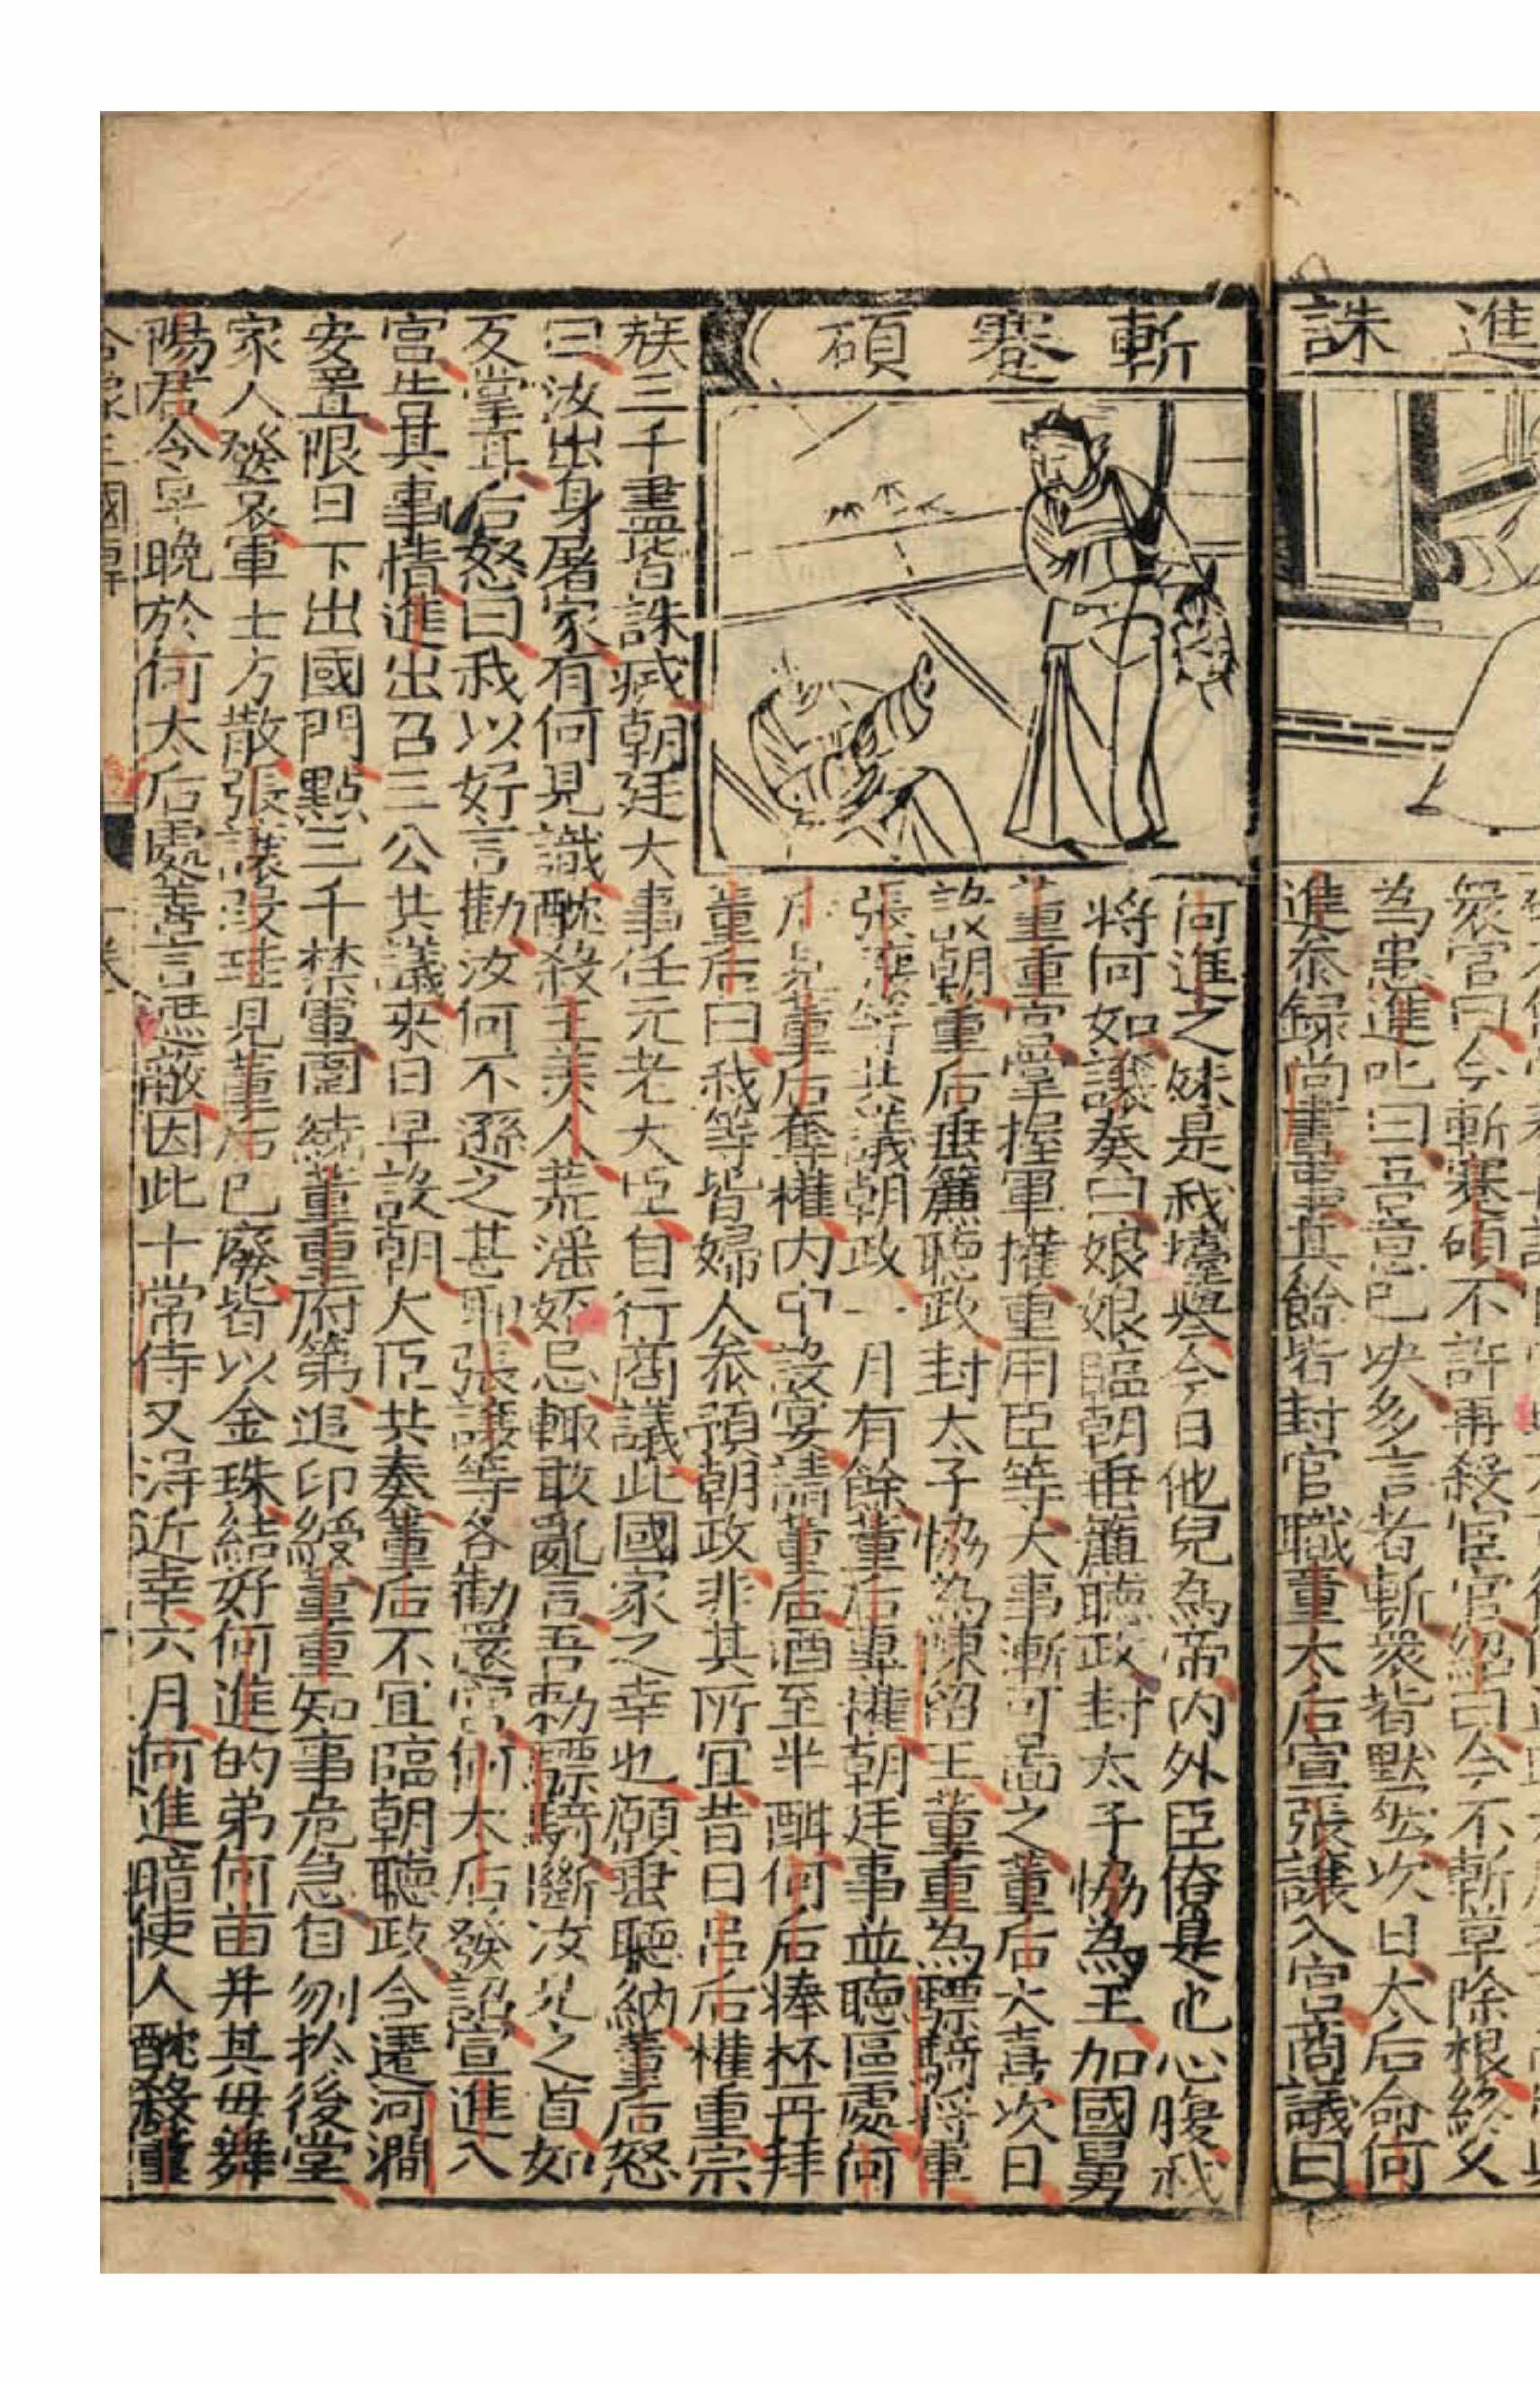 進誅
眾官曰今斬蹇碩不許再殺宦官紹曰今不斬草除根終久
為患進叱曰吾意已决多言者斬眾皆默然次日太后命何
進叅録尚書事其餘皆封官職董太后宣張讓入宮商議曰
斬蹇碩
何進之妹是我擡舉今日他兒為帝内外臣僚是他心腹我
將何如讓奏曰娘娘臨朝垂簾聽政封太子協為王加國舅
董重官掌握軍權重用臣等大事漸可圖之董后大喜次日
設朝董后垂簾聽政封太子協為陳留王董重為驃騎將軍
張讓等共議朝政一月有餘董后專權朝廷事並聽區處何
后見董后奪權内中設宴請董后酒至半酣何后捧杯再拜
董后曰我等皆婦人叅預朝政非其所宜昔日吕后權重宗
族三千盡皆誅㓕朝廷大事任元老大臣自行商議此國家之幸也願垂聽納董后怒
曰汝出身屠家有何見識酖殺王美人荒滛妬忌輙敢亂言吾勅驃騎斷汝兄之首如
反掌耳后怒曰我以好言勸汝何不遜之甚耶張讓等各勸還宮何太后發詔宣進入
宮告其事情進出召三公共議來日早設朝大臣共奏董后不宜臨朝聽政今遷河澗
安置限日下出國門點三千禁軍圍繞董重府第追印綬董重知事危急自刎扵後堂
家人發哀軍士方散張讓段珪見董后已廢皆以金珠結好何進的弟何苗并其母舞
陽君令早晚於何太后處善言遮蔽因此十常侍又淂近幸六月何進暗使人酖殺董